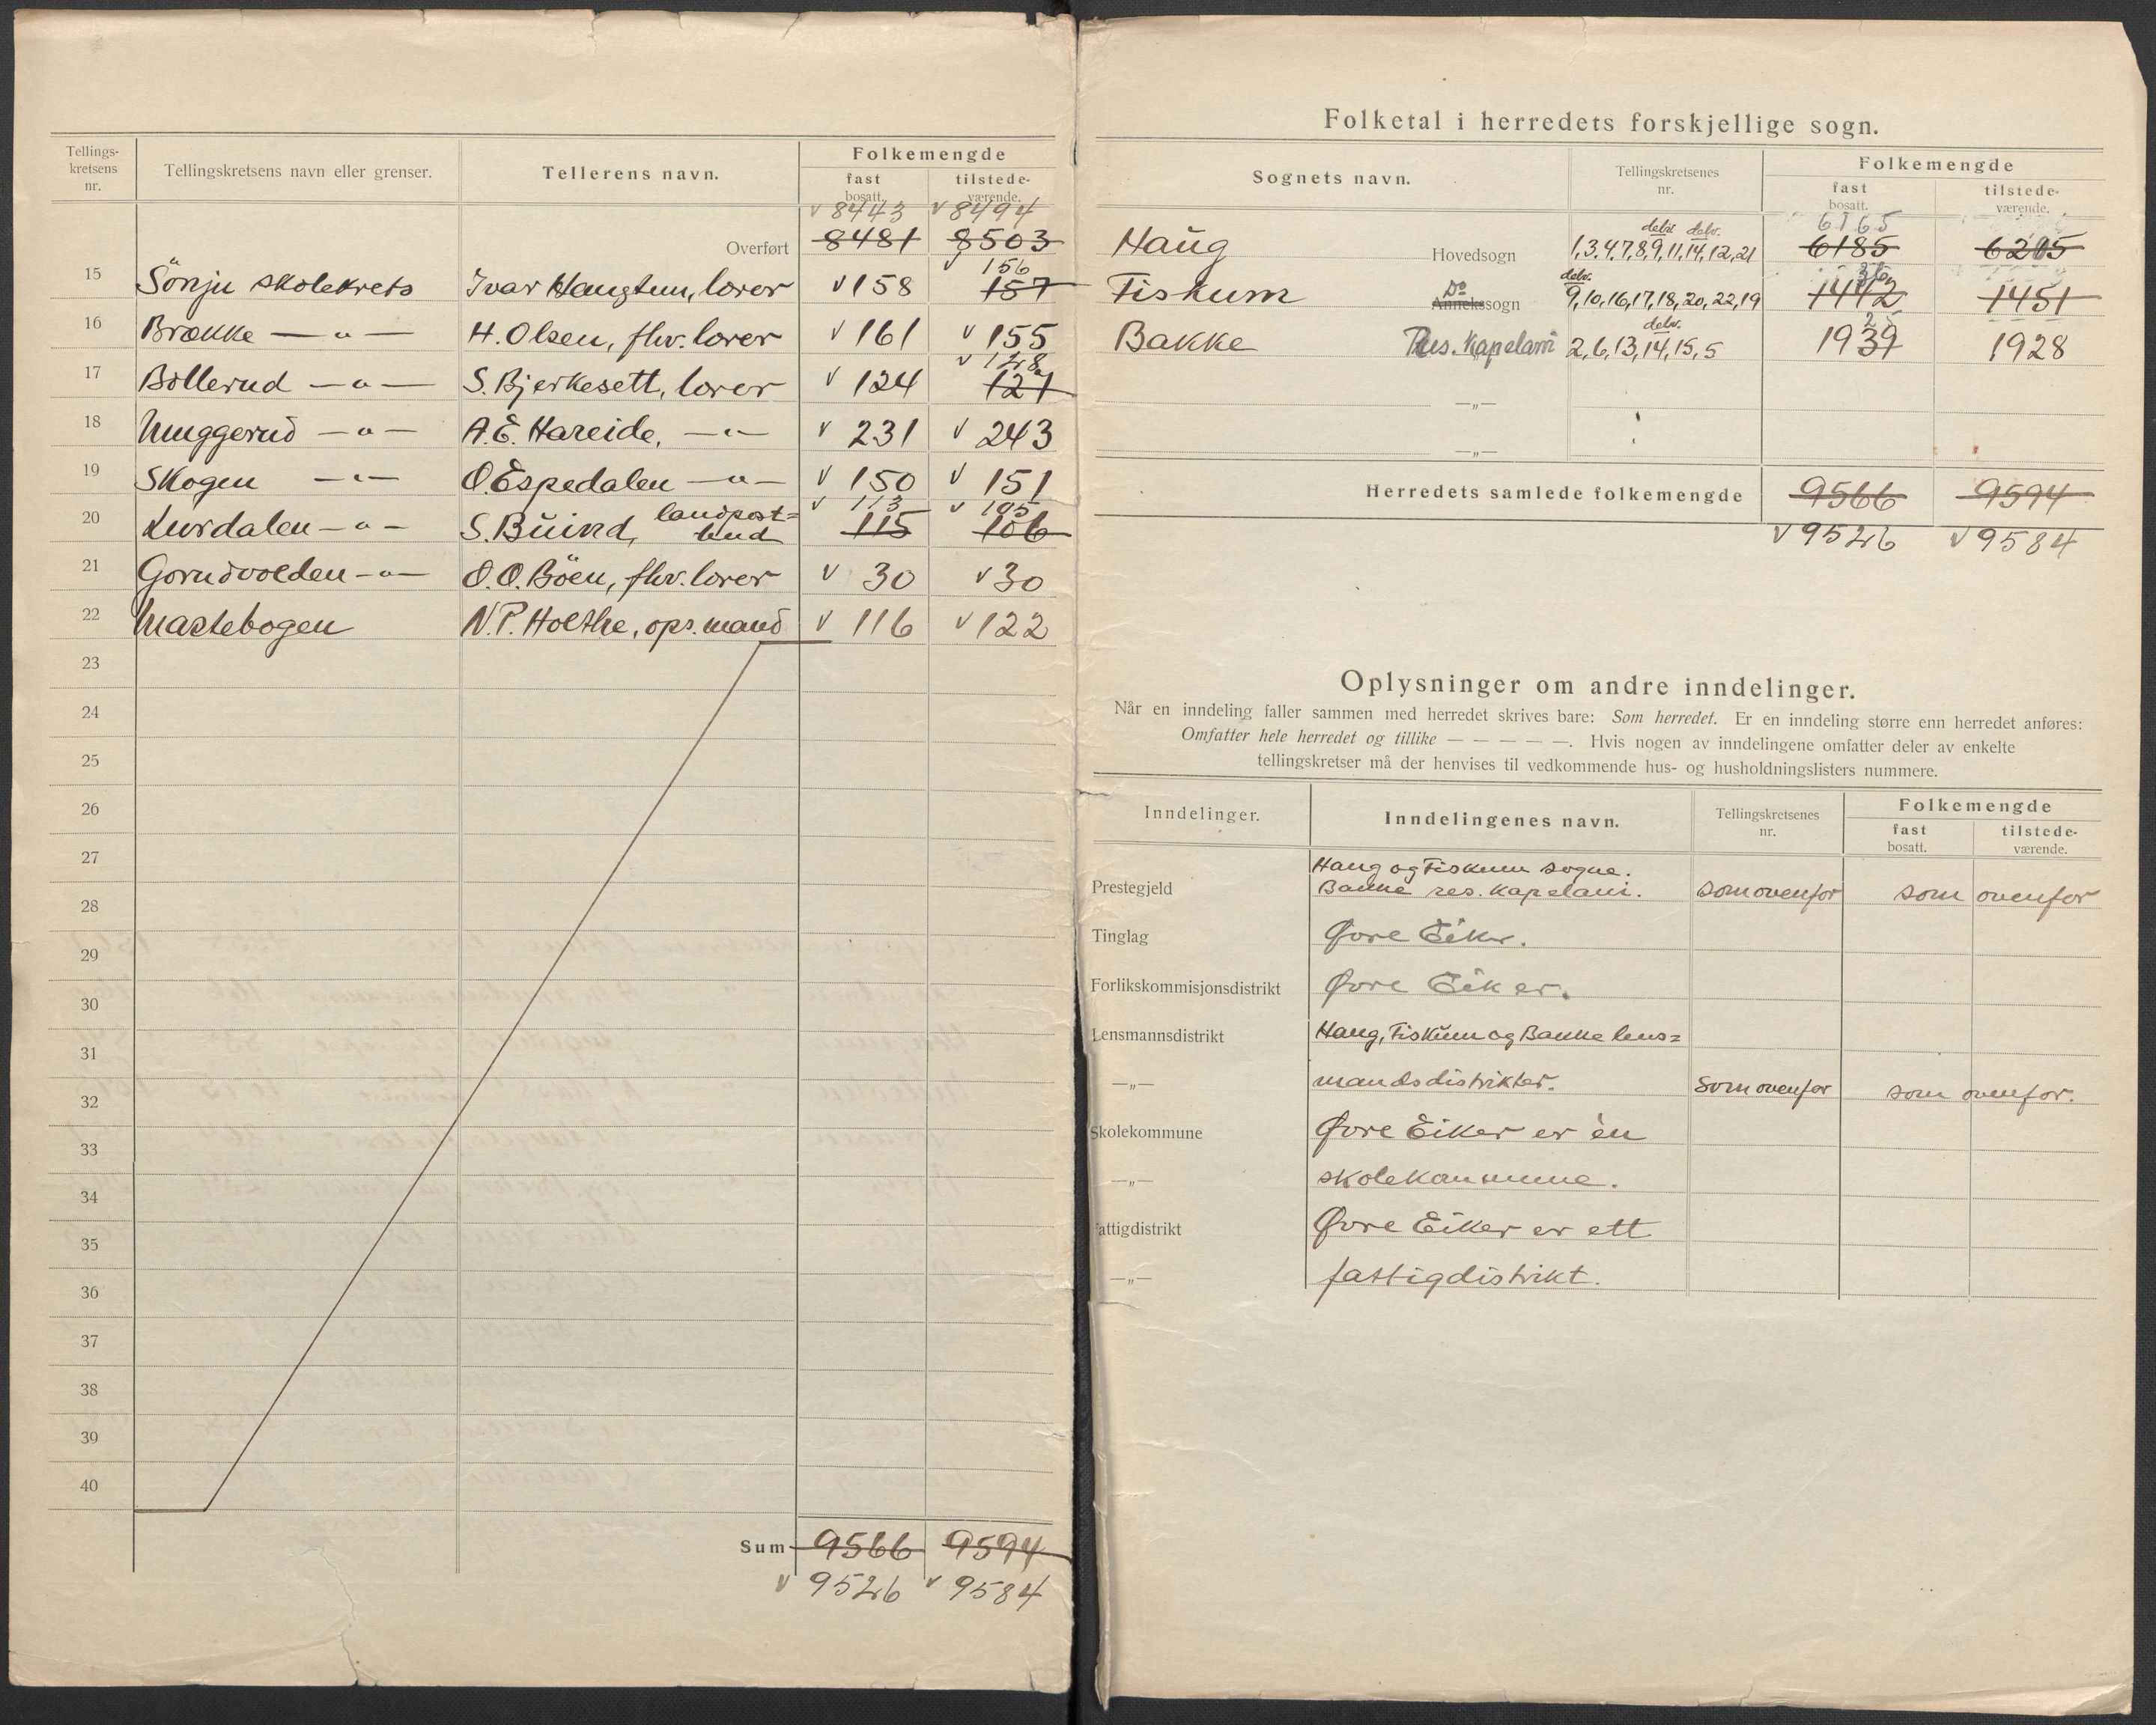 Tellings-kretsens nr. Tellingskretsens navn eller grenser. Tellerens navn. Folkemengde
fast bosatt. tilstede-værende.
v 8443 v 8494
Overført 8481 8503
v 156
15 Sönju skolekrets Ivar Haugtun, lærer v 158 157
16 Brække —„— H. Olsen, fhv. lærer v 161 v 155
v 148
17 Böllerud —„— S. Bjerkesett, lærer v 124 127
18 Muggerud —„— A.E. Hareide, —„— v 231 v 243
19 Skogen —„— O. Espedalen —„— v 150 v 151
v 113 v 105
20 Lurdalen —„— S. Buind, landpost=bud 115 106
21 Gorudvolden —„— O.O. Böen, fhv. lærer v 30 v 30
22 Mastebogen N.P. Holthe, ops.mand v 116 v 122
23
24
25
26
27
28
29
30
31
32
33
34
35
36
37
38
39
40
Sum 9566 9594
v 9526 v 9584
Folketal i herredets forskjellige sogn.
Sognets navn. Tellingskretsenes nr. Folkemengde
fast bosatt. tilstede-værende.
delv. delv. 6165
Haug Hovedsogn 1,3,4,7,8,9,11,14,12,21 6185 6205
delv. 36
Fiskum Do Annekssogn 9,10,16,17,18,20,22,19 1442 1451
delv. 25
Bakke Res. Kapelani 2,6,13,14,15,5 1939 1928
—„—
—„—
Herredets samlede folkemengde 9566 9594
v 9526 v 9584
Oplysninger om andre inndelinger.
Når en inndeling faller sammen med herredet skrives bare: Som herredet. Er en inndeling større enn herredet anføres:
Omfatter hele herredet og tillike — — — — —. Hvis nogen av inndelingene omfatter deler av enkelte
tellingskretser må der henvises til vedkommende hus- og husholdningslisters nummere.
Inndelinger. Inndelingenes navn. Tellingskretsenes nr. Folkemengde
fast bosatt. tilstede-værende.
Haug og Fiskum sogne.
Prestegjeld Bakke res. kapelani. som ovenfor som ovenfor
Tinglag Øvre Eiker.
Forlikskommisjonsdistrikt Øvre Eiker.
Lensmannsdistrikt Haug, Fiskum og Bakke lens=
—„— mandsdistrikter. som ovenfor som ovenfor.
Skolekommune Øvre Eiker er èn
—„— skolekommune.
Fattigdistrikt Øvre Eiker er ett
—„— fattigdistrikt.